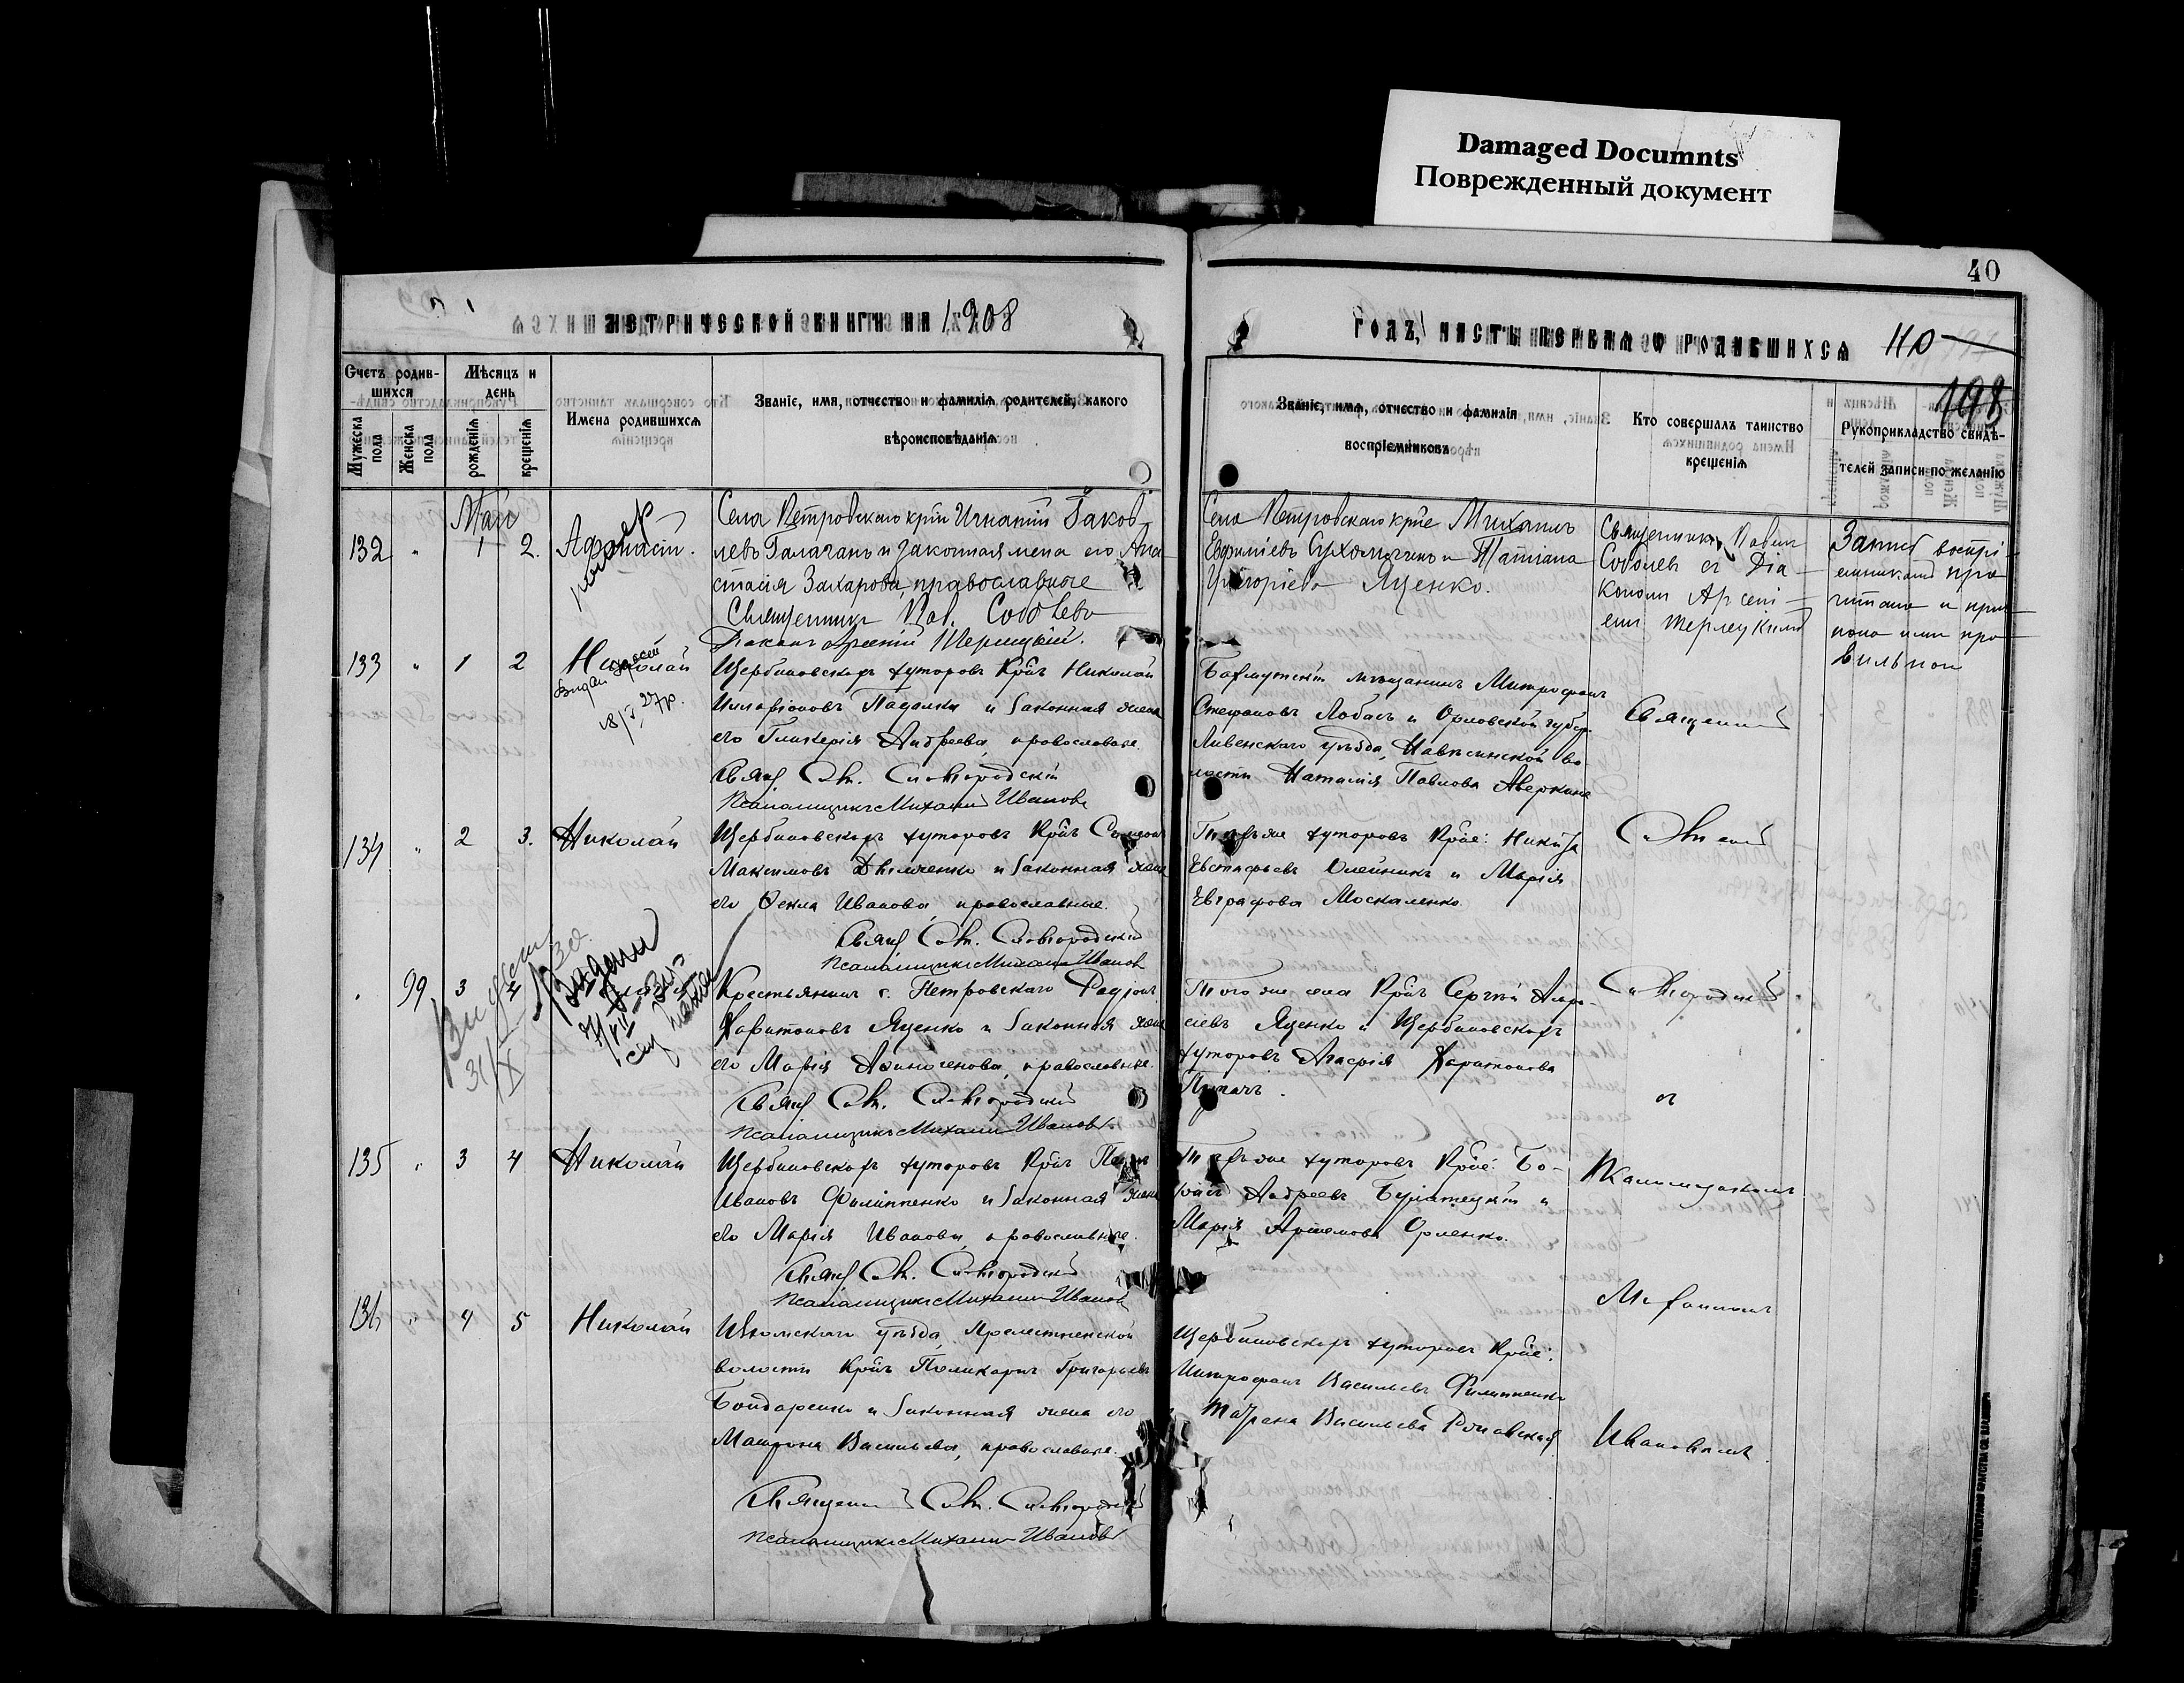 Damaged Documnts
Поврежденный документ
40
МЕТРИЧЕСКОЙ КНИГИ НА 1908
ГОДЪ, ЧАСТЬ ПЕРВАЯ О РОДИВШИХСЯ 110
198
Счетъ родив-
шихся
Мужеска пола
Женска пола
Мѣсяцъ и
день
рожденія
крещенія
Имена родившихся
Званіе, имя, отчество и фамилія родителей, какого
вѣроисповѣданія
Званіе, имя, отчество и фамилія
воспріемниковъ
Кто совершалъ таинство
крещенія
Рукоприкладство свидѣ-
телей записи по желанію
Май
132 " 1 2. Афанасій.
Села Петровскаго кр̃нъ Игнатій Яков
левъ Галаганъ и законная жена его Ана
стасія Захарова, православные
Священникъ Пав. Соболевъ
Діаконъ Арсеній Терлецкій.
Села Петровскаго кр̃не Михаилъ
Евфиміевъ Сухомлинъ и Татіана
Григоріева Яценко.
Священникъ Павелъ
Соболевъ съ Діа-
кономъ Арсені-
емъ Терлецкимъ
Запись воспрі-
емникамъ про
читана и при
пра
вильной
133 " 1 2 Николай
18/V 27 р.
Щербиновскихъ хуторовъ Кр̃нъ Николай
Илларіоновъ Падалка и законная жена
его Гликерія Андреева, православные.
Свящ. Сим. Славгородскій
Псаломщикъ Михаилъ Ивановъ
Бахмутскій мѣщанинъ Митрофанъ
Стефановъ Лобасъ и Орловской губер.
Ливенскаго уѣзда, во-
лости Наталія Павлова Аверкина
Священникъ
134 " 2 3. Николай
Щербиновскихъ хуторовъ Кр̃нъ
Максимовъ и законная жена
его Ѳекла Иванова, православные.
Свящ. Сим. Славгородскій
Псаломщикъ Михаилъ Ивановъ
Тѣхъ же хуторовъ Кр̃не: Никита
Евстафьевъ Олейникъ и Марія
Евграфова Москаленко.
99 3 4
Выдан
31/X
Выдан
Крестьянинъ с. Петровскаго Родіонъ
Харитоновъ Яценко и законная жена
его Марія Афиногенова, православные.
Свящ. Сим. Славгородскій
Псаломщикъ Михаилъ Ивановъ
Того же села Кр̃нъ Сергѣй
сіевъ Яценко и Щербиновскихъ
хуторовъ Агафія Харитонова
Славгородскій
съ
135 " 3 4 Николай
Щербиновскихъ хуторовъ Кр̃нъ
Ивановъ Филиппенко и законная жена
его Марія Иванова, православные.
Свящ. Сим. Славгородскій
Псаломщикъ Михаилъ Ивановъ
Тѣхъ же хуторовъ Кр̃не:
Андреевъ и
Марія Артемова Орленко.
Псаломщикомъ
Михаиломъ
136 " 4 5 Николай
Изюмскаго уѣзда, Прелестненской
волости Кр̃нъ Поликарпъ Григорьевъ
Бондаренко и законная жена его
Матрона Васильева, православные.
Священникъ Сим. Славгородскій
Псаломщикъ Михаилъ Ивановъ
Щербиновскихъ хуторовъ Кр̃не:
Митрофанъ Васильевъ Филиппенко
Васильева
Ивановымъ.